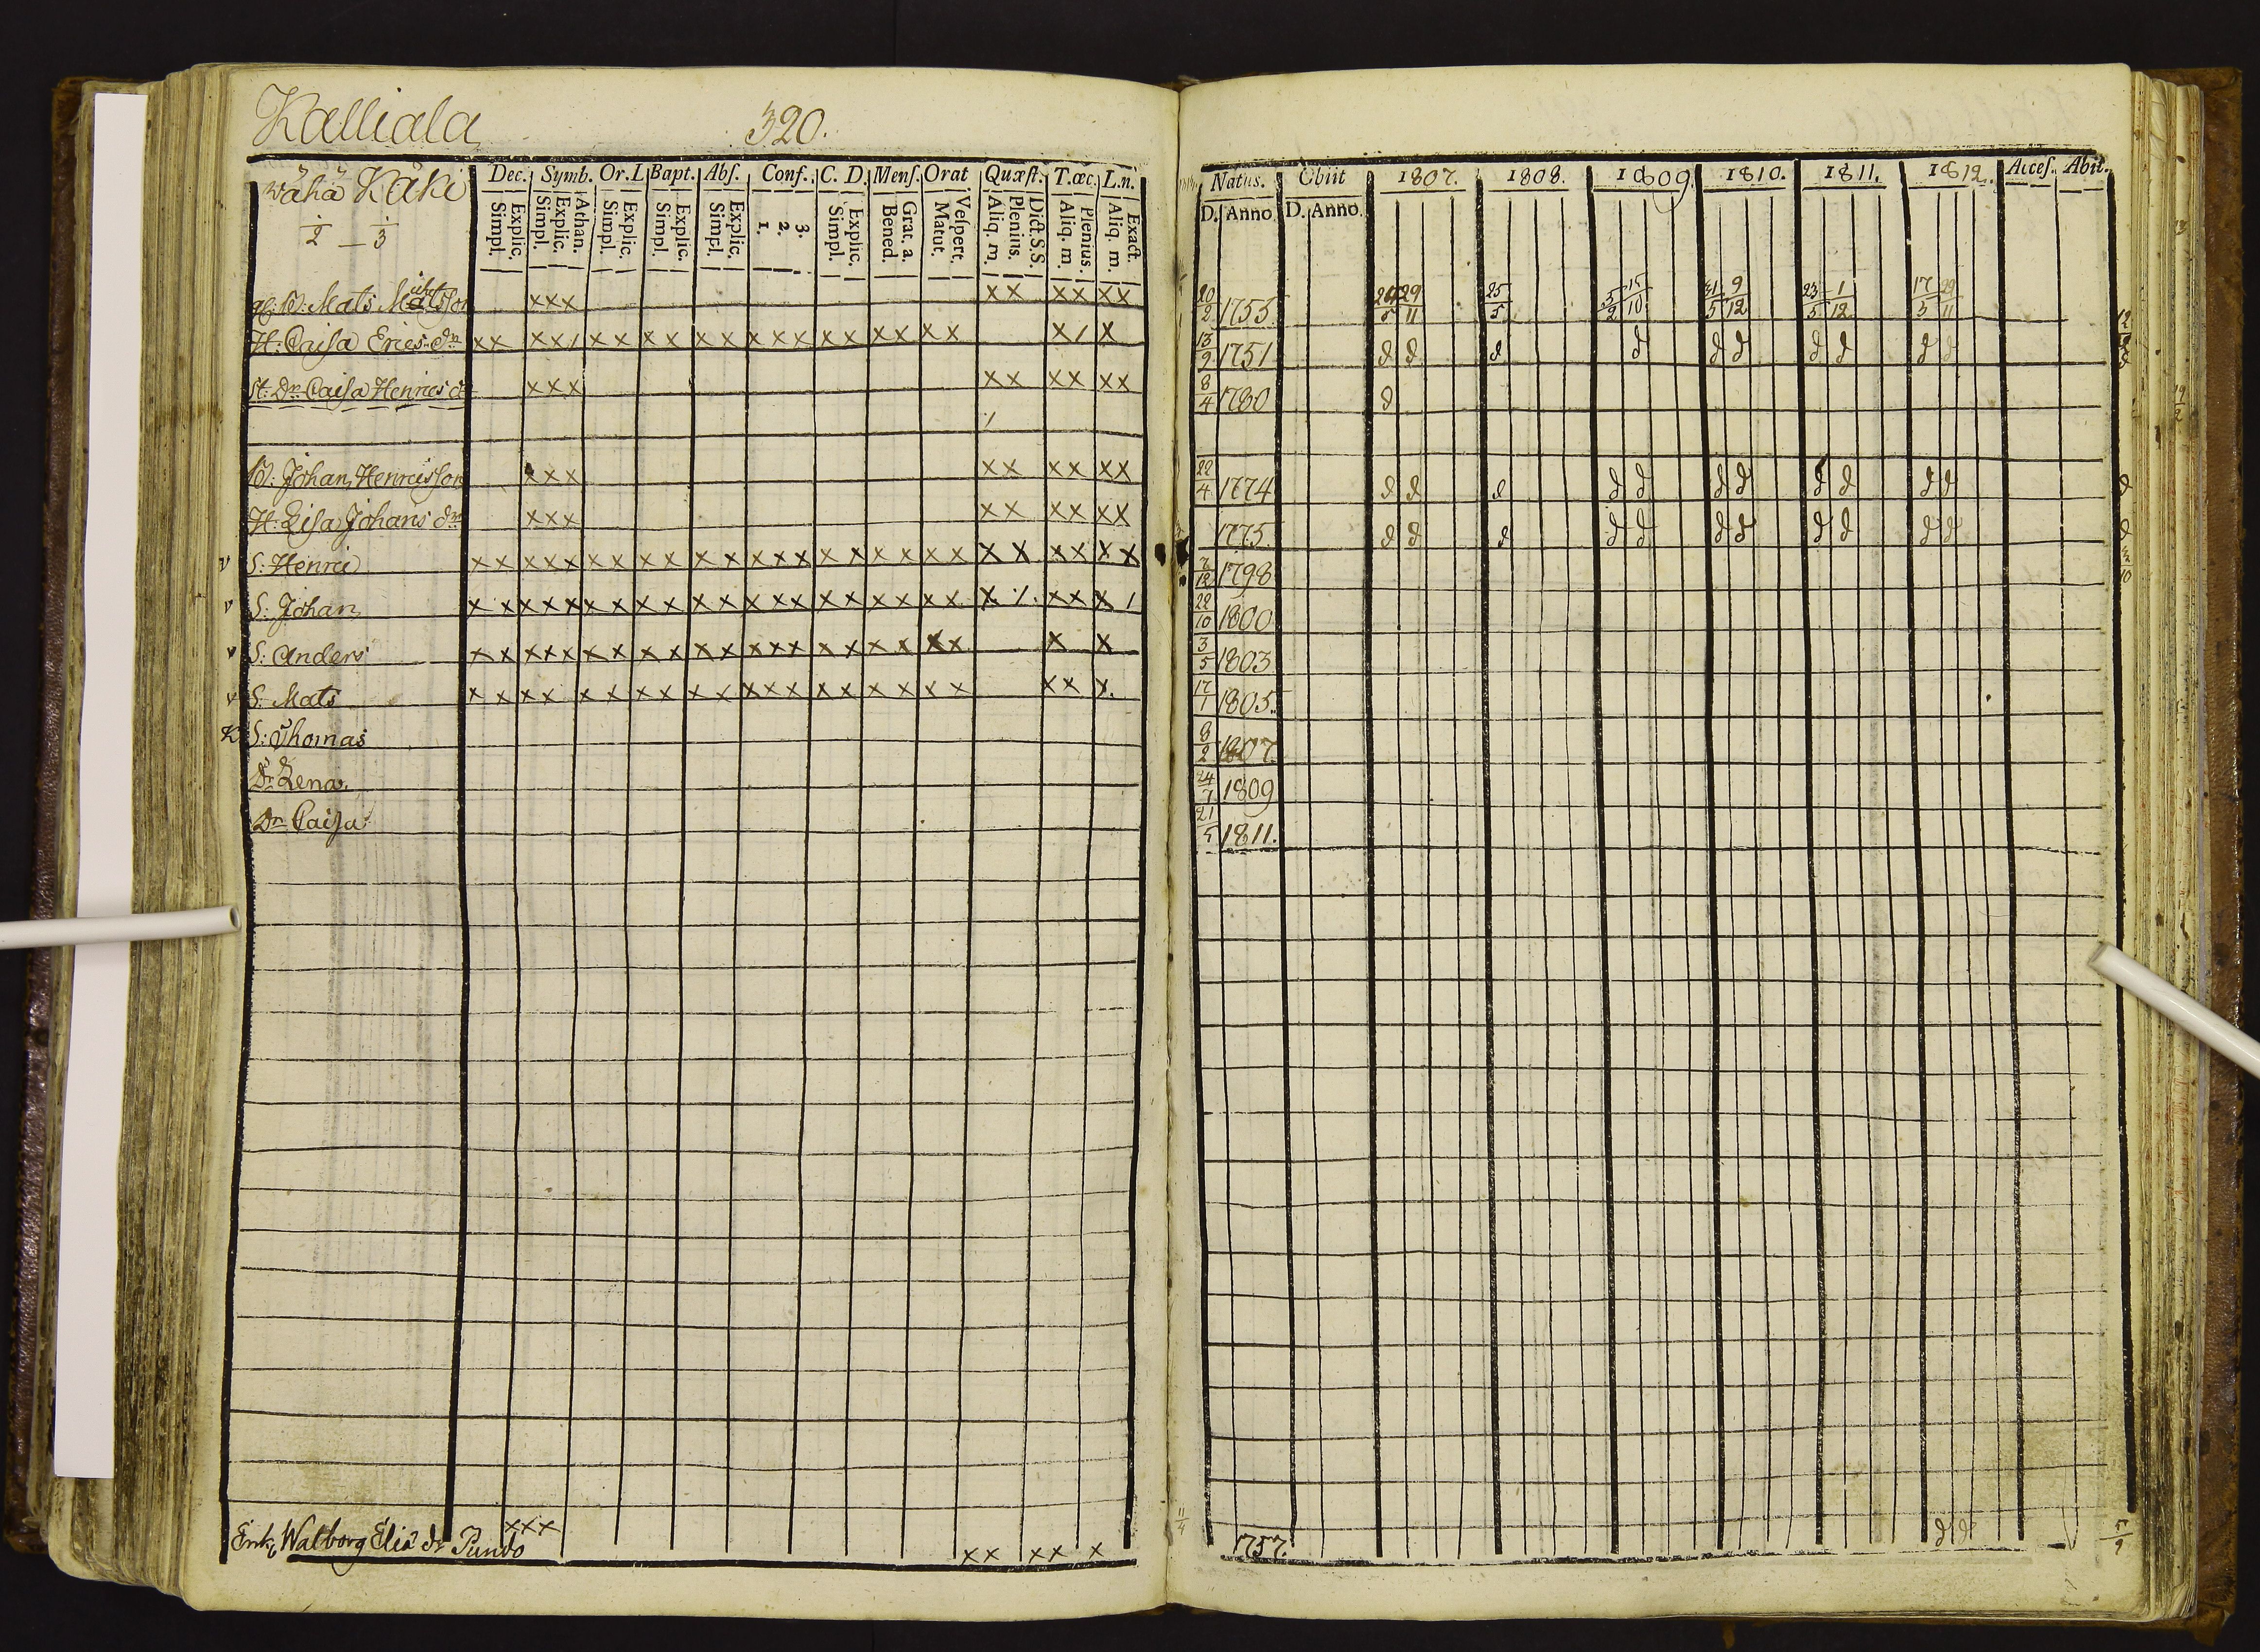 Kalliala 320.
wähä Käki
1/2 — 1/3
Dec. Symb. Or.L Bapt. Abſ. Conf. C. D. Menſ. Orat Quæſt. T.œc. L.n.
Simpl. Explic. Simpl. Explic. Athan. Simpl. Explic. Simpl. Explic. Simpl. Explic. 1. 2. 3. Simpl. Explic. Bened. Grat. a. Matut. Veſpert. Aliq. m. Plenius. Dict.S.S. Aliq. m. Plenius. Aliq. m. Exact.
Mats Matsson xxx xx xx xx
H: Caisa Erics dr xx xx/ xx xx xx xxx xx xx xx x/ x
St: Dr Caisa Henrics dr xxx xx xx xx
B: Johan Henricsson xxx xx xx xx
H: Lisa Johans dr xxx xx xx xx
v S: Henric xx xxx xx xx xx xxx xx xx xx xx xx xx
v S: Johan xx xxx xx xx xx xxx xx xx xx x/. xx x/
v S: Anders xx xxx xx xx xx xxx xx xx xx x x
v S: Mats xx xx xx xx xx xxx xx xx xx xx x.
K S: Thomas
Dr Lena.
Dr Caisa
Enk. Walborg Eliæ dr Pundo xxx xx xx x
Natus. Obiit 1807. 1808. 1809. 1810. 1811. 1812. Acceſ. Abiit.
D. Anno D. Anno.
20/2 1755. 29/11 25/5 15/10 31/5 9/12 23/5 1/12 17/5 29/11
13/9 1751 d d d d d d d d d d
8/4 1780 d
22/4 1774 d d d d d d d d d d d d
1775 d d d d d d d d d d d d
7/12 1798
22/10 1800
3/5 1803
17/1 1805.
8/2 1807.
24/7 1809
21/5 1811.
1757. d d 5/9